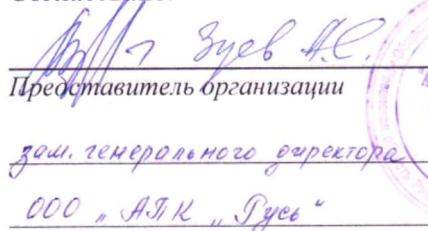 Зуев А.С.
Представитель организации
зам. генерального директора
ООО „АПК „Русь"